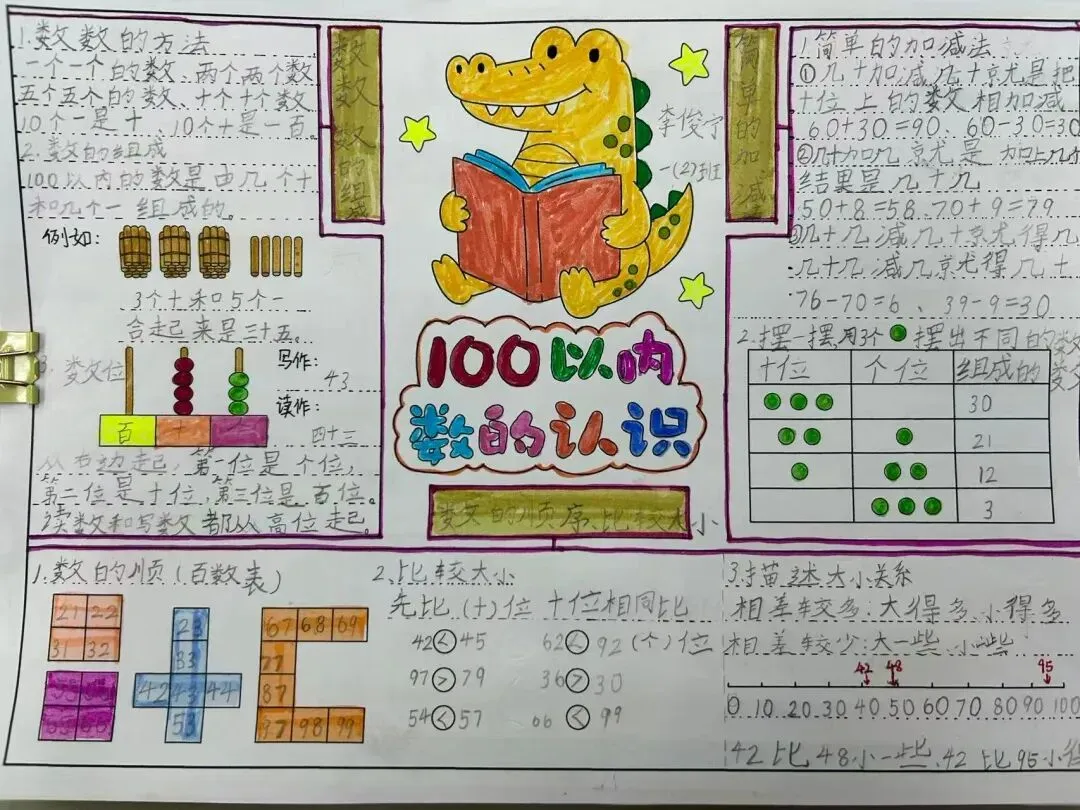 1.数数的方法
一个一个的数、两个两个数
五个五个的数、十个十个数
10个一是十、10个十是一百。
2.数的组成
100以内的数是由几个十
和几个一组成的。
例如:
3个十和5个一
合起来是三十五。
3.数位
写作:
43
读作:
四十三
百 十 个
从右边起,第一位是个位,
第二位是十位,第三位是百位。
读数和写数都从高位起。
数数 数的组成
李俊宇
一(2)班
100以内
数的认识
数的顺序、比较大小
简单的加减
1.简单的加减法
①几十加减几十就是把
十位上的数相加减
60+30=90、60-30=30
②几十加几就是几十几
结果是几十几
50+8=58、70+9=79
③几十几减几十就得几
几十几减几就得几十
76-70=6、39-9=30
2.摆一摆,用3个 摆出不同的数
十位 个位 组成的数
30
21
12
3
1.数的顺序(百数表)
21 22
31 32
23
33
42 43 44
53
67 68 69
77
87
97 98 99
2、比较大小
先比(十)位 十位相同比
(个)位
42<45 62<92
97>79 36>30
54<57 66<99
3.描述大小关系
相差较多:大得多、小得多
相差较少:大一些、小一些
42 48 95
0 10 20 30 40 50 60 70 80 90 100
42比48小一些、42比95小得